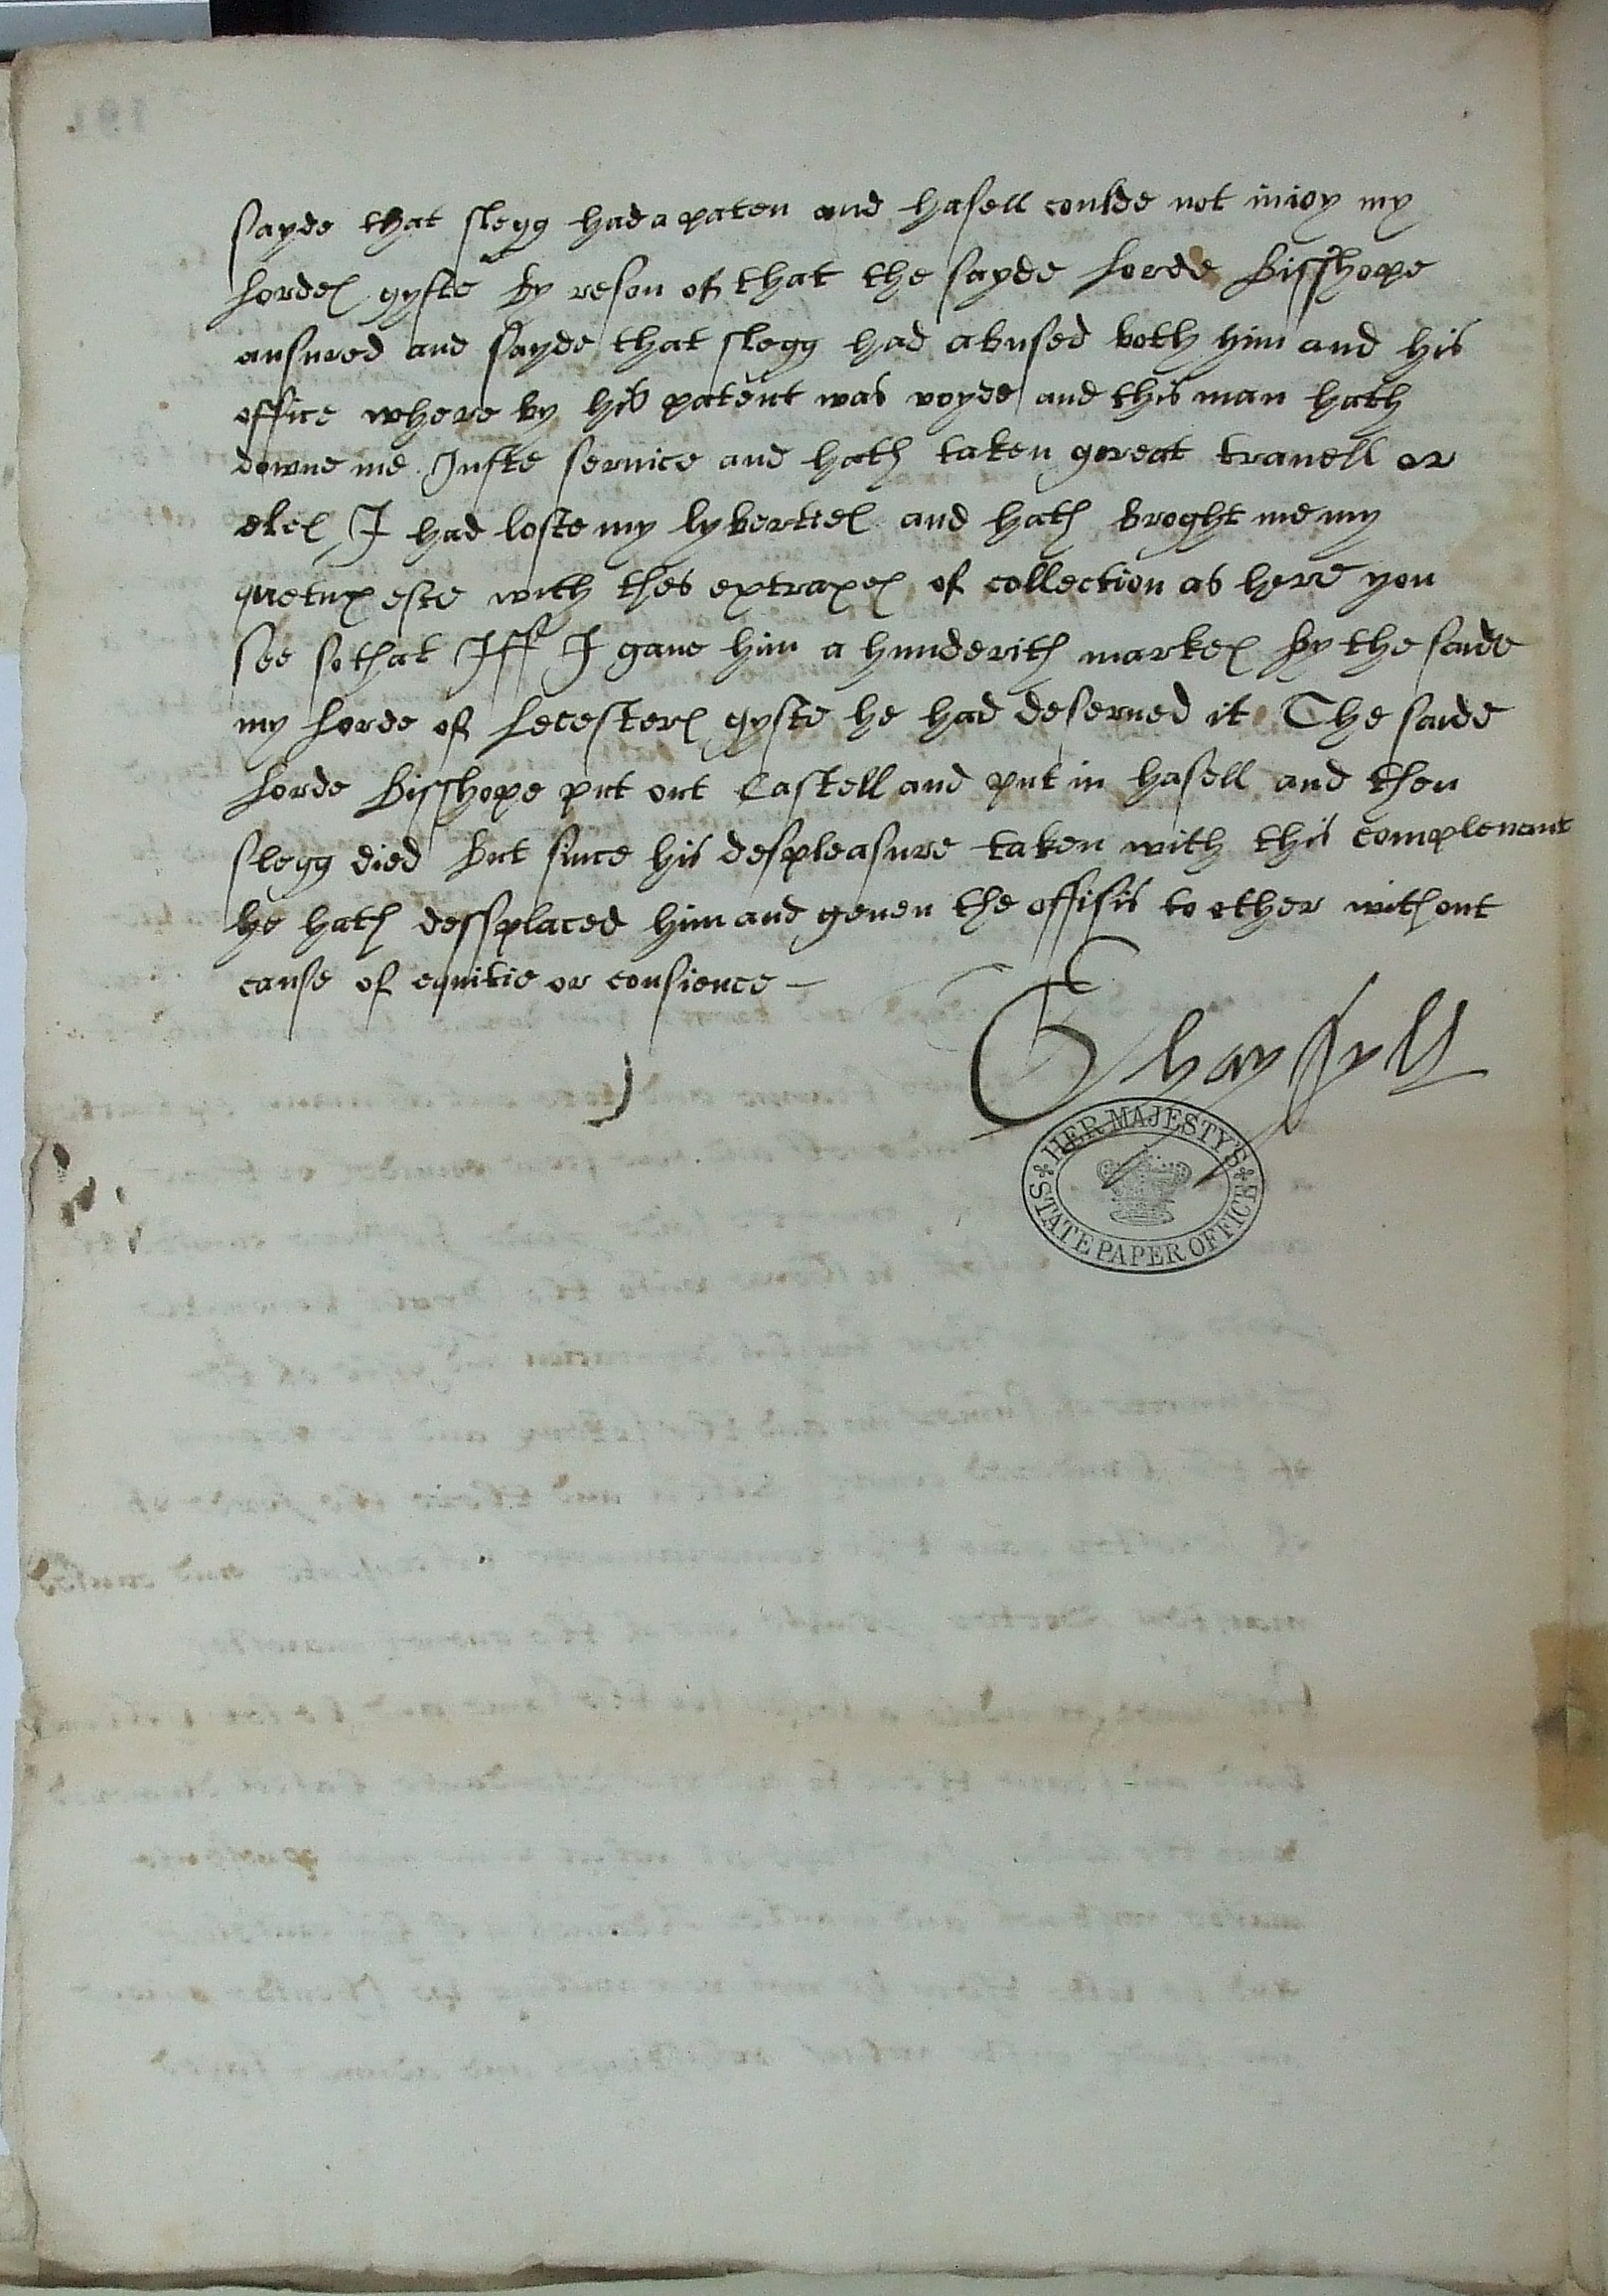 sayde that slegg had a paten and hasell coulde not inioy my
lordes gyfte by reson of that the sayde lorde Bisshope
ansured and sayde that slegg had abused both him and his
office where by his patent was voyde and this man hath
downe me Juste seruice and hath taken greeat trauell or
eles I had loste my lyberties and hath broght me my
quetus este with thes extraxes of collection as here you
see so that Iff I gaue him a hunderith markes by the saide
my lorde of lecesters gyfte he had deserued it The saide
lorde Bisshope put out Castell and put in hasell and then
slegg died But since his despleasure taken with this complenant
he hath dessplaced him and geuen the offisis to other without
cause of equitie or consience
HER MAJESTY'S
STATE PAPER OFFICE